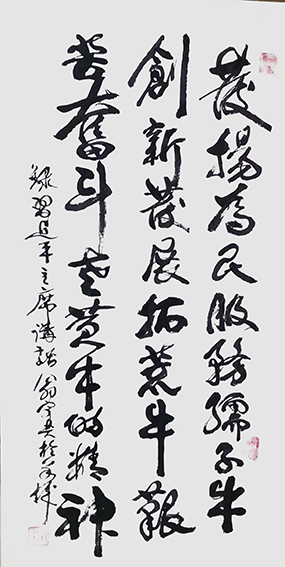 發揚為民服務孺子牛
創新發展拓荒牛艱
苦奮斗老黃牛的精神
錄習近平主席講話